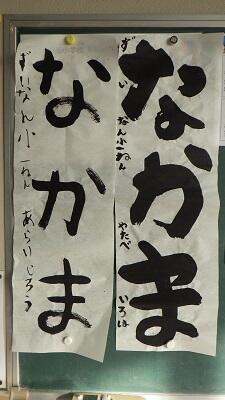 なかま
ずいなん小一ねん やたべ いろは
なかま
ずいなん小一ねん あらいじろう